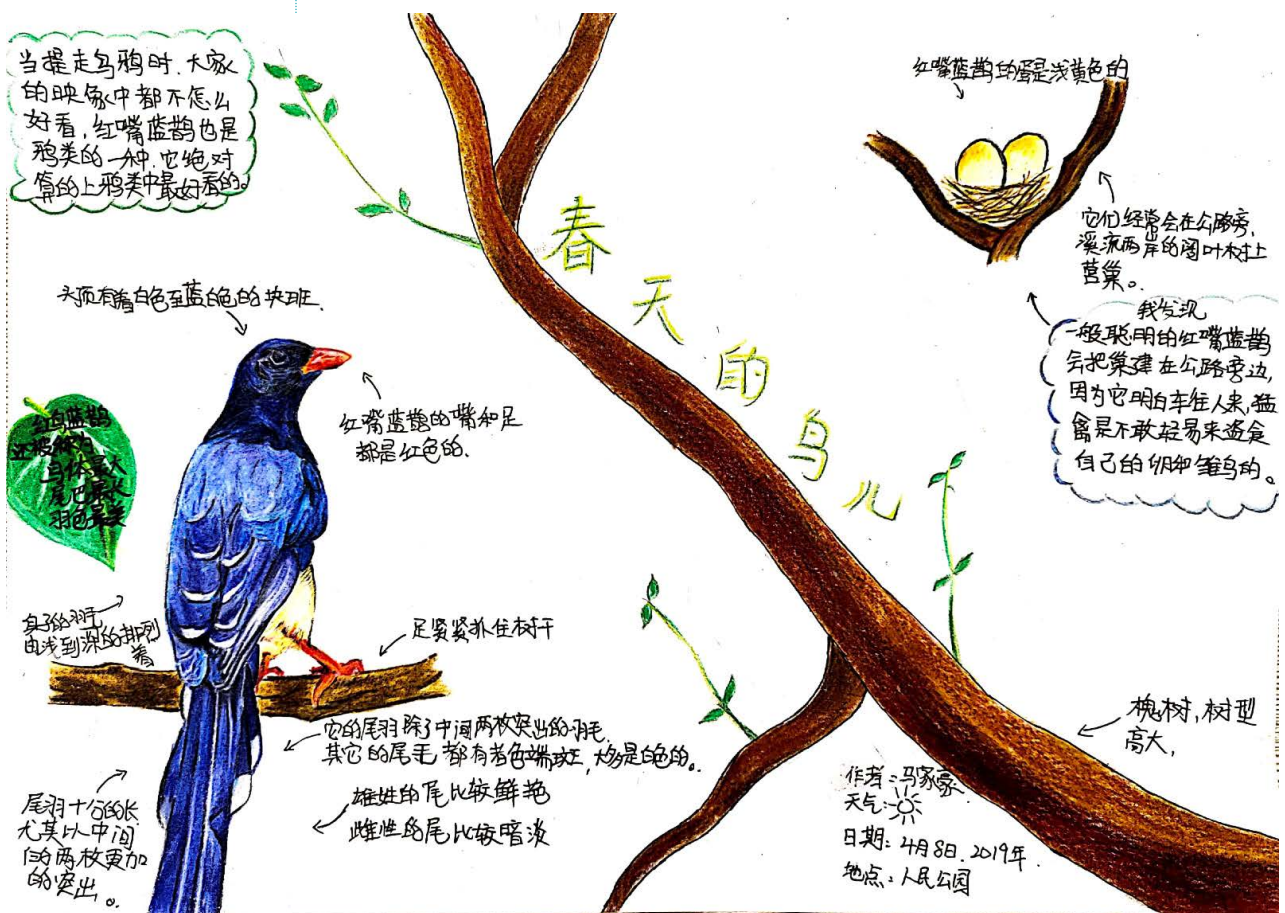 当提走乌鸦时.大家
的映象中都不怎么
好看,红嘴蓝鹊也是
鸦类的一种.它绝对
算的上鸦类中最好看的。
春天的鸟儿
红嘴蓝鹊的蛋是浅黄色的
它们经常会在公路旁,
溪流两岸的阔叶树上
营巢。
我发现
一般聪明的红嘴蓝鹊
会把巢建在公路旁边,
因为它明白车往人来,猛
禽是不敢轻易来盗食
自己的卵和雏鸟的。
头顶有着白色至蓝白色的块班.
红嘴蓝鹊的嘴和足
都是红色的.
蓝鹊
还被称为
身体最大
尾巴最长
羽色最美
身子的羽毛
由浅到深的排列
着
足紧紧抓住树干
它的尾羽除了中间两枚突出的羽毛.
其它的尾毛都有着色端斑,大多是白色的。
雄性的尾比较鲜艳
雌性的尾比较暗淡
尾羽十分的长
尤其以中间
的两枚更加
的突出。
槐树,树型
高大,
作者:马家豪
天气:
日期:4月8日.2019年.
地点:人民公园